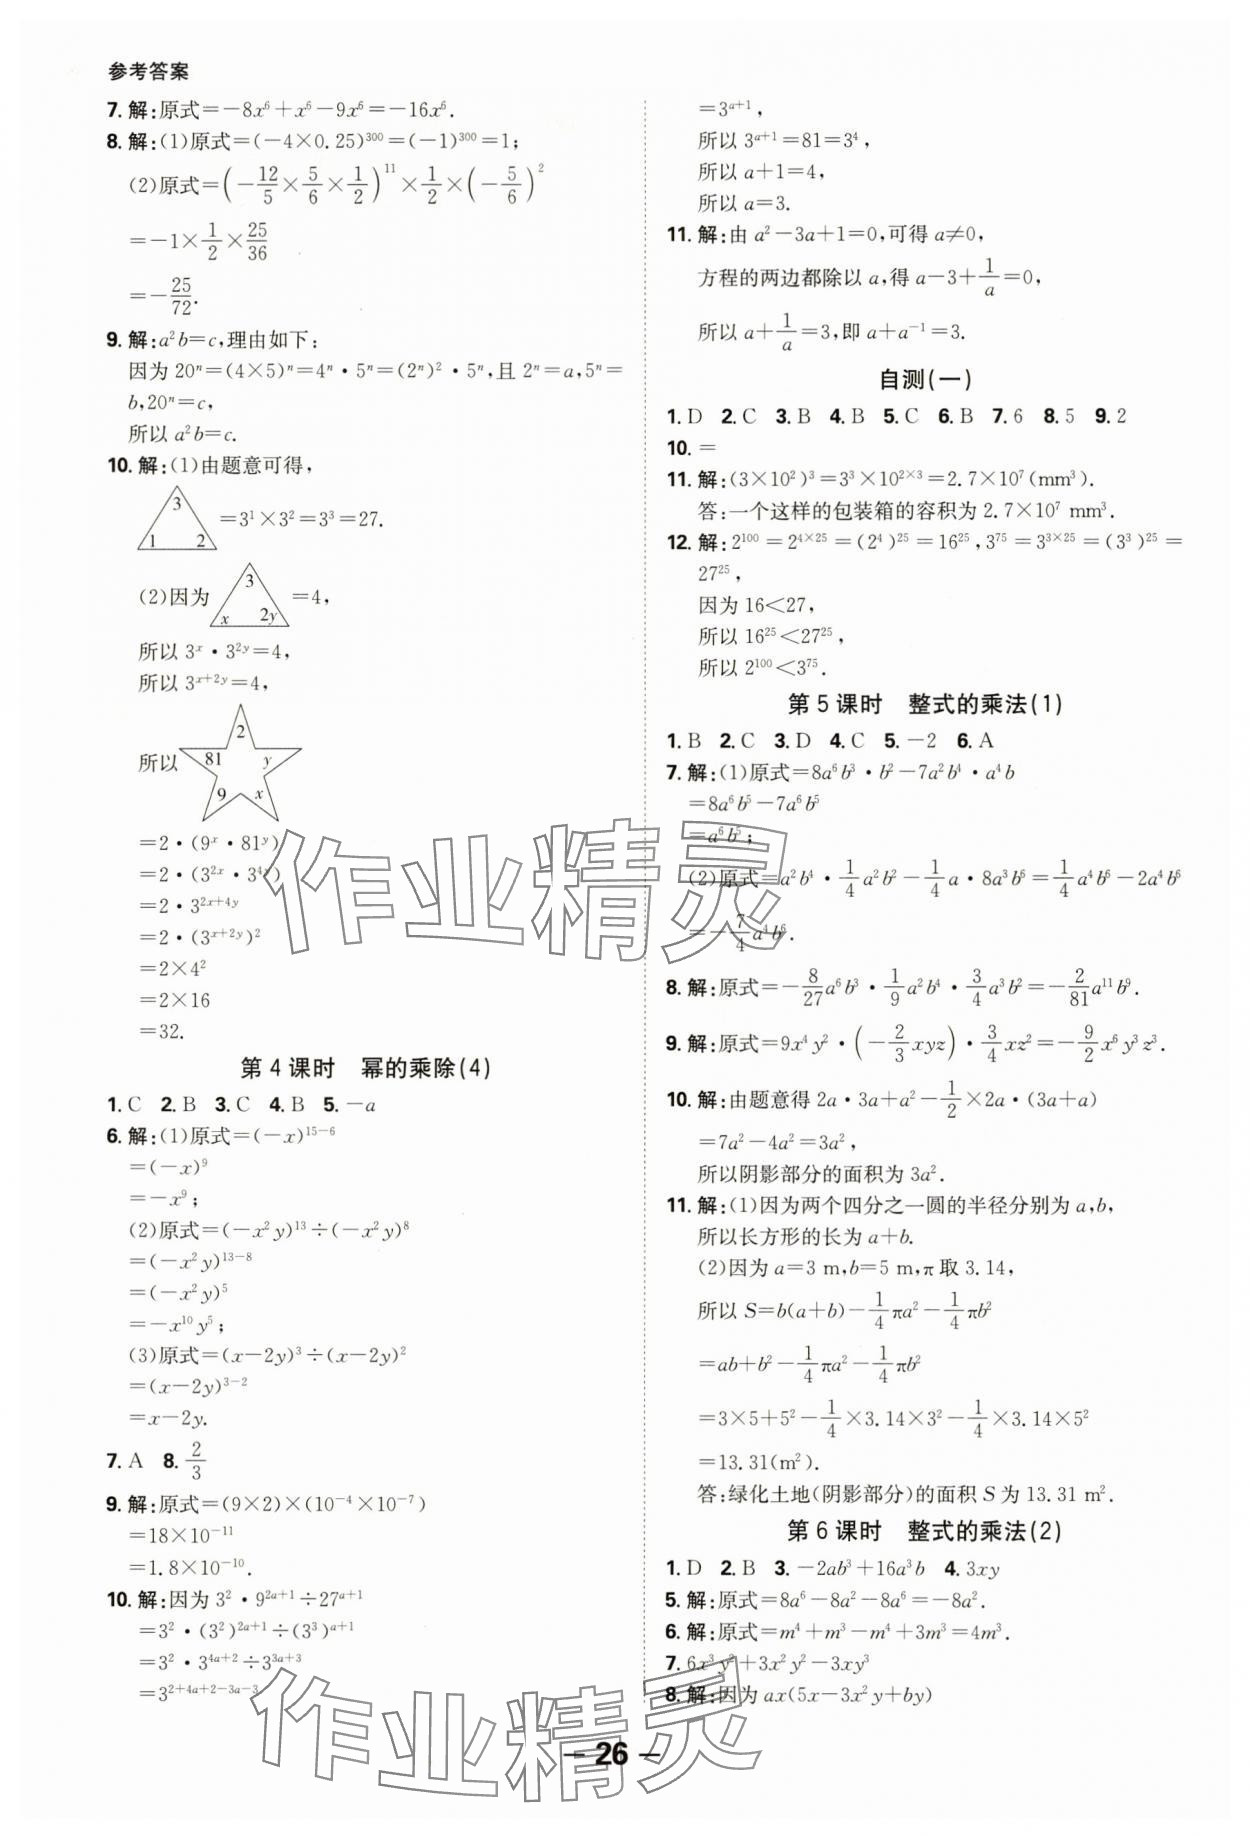 参考答案
7. 解:原式=-8x⁶+x⁶-9x⁶=-16x⁶.
8. 解:(1)原式=(-4×0.25)³⁰⁰=(-1)³⁰⁰=1;
(2)原式=(-12/5×5/6×1/2)¹¹×1/2×(-5/6)²
=-1×1/2×25/36
=-25/72.
9. 解:a²b=c,理由如下:
因为 20ⁿ=(4×5)ⁿ=4ⁿ·5ⁿ=(2ⁿ)²·5ⁿ,且 2ⁿ=a,5ⁿ=
b,20ⁿ=c,
所以 a²b=c.
10. 解:(1)由题意可得,
3
1 2 =3¹×3²=3³=27.
(2)因为 3 x 2y =4,
所以 3ˣ·3²ʸ=4,
所以 3ˣ⁺²ʸ=4,
所以 2 81 y 9 x
=2·(9ˣ·81ʸ)
=2·(3²ˣ·3⁴ʸ)
=2·3²ˣ⁺⁴ʸ
=2·(3ˣ⁺²ʸ)²
=2×4²
=2×16
=32.
第 4 课时 幂的乘除(4)
1. C 2. B 3. C 4. B 5. -a
6. 解:(1)原式=(-x)¹⁵⁻⁶
=(-x)⁹
=-x⁹;
(2)原式=(-x²y)¹³÷(-x²y)⁸
=(-x²y)¹³⁻⁸
=(-x²y)⁵
=-x¹⁰y⁵;
(3)原式=(x-2y)³÷(x-2y)²
=(x-2y)³⁻²
=x-2y.
7. A 8. 2/3
9. 解:原式=(9×2)×(10⁻⁴×10⁻⁷)
=18×10⁻¹¹
=1.8×10⁻¹⁰.
10. 解:因为 3²·9²ᵃ⁺¹÷27ᵃ⁺¹
=3²·(3²)²ᵃ⁺¹÷(3³)ᵃ⁺¹
=3²·3⁴ᵃ⁺²÷3³ᵃ⁺³
=3²⁺⁴ᵃ⁺²⁻³ᵃ⁻³
=3ᵃ⁺¹,
所以 3ᵃ⁺¹=81=3⁴,
所以 a+1=4,
所以 a=3.
11. 解:由 a²-3a+1=0,可得 a≠0,
方程的两边都除以 a,得 a-3+1/a=0,
所以 a+1/a=3,即 a+a⁻¹=3.
自测(一)
1. D 2. C 3. B 4. B 5. C 6. B 7. 6 8. 5 9. 2
10. =
11. 解:(3×10²)³=3³×10²ˣ³=2.7×10⁷(mm³).
答:一个这样的包装箱的容积为 2.7×10⁷ mm³.
12. 解:2¹⁰⁰=2⁴ˣ²⁵=(2⁴)²⁵=16²⁵,3⁷⁵=3³ˣ²⁵=(3³)²⁵=
27²⁵,
因为 16<27,
所以 16²⁵<27²⁵,
所以 2¹⁰⁰<3⁷⁵.
第 5 课时 整式的乘法(1)
1. B 2. C 3. D 4. C 5. -2 6. A
7. 解:(1)原式=8a⁶b³·b²-7a²b⁴·a⁴b
=8a⁶b⁵-7a⁶b⁵
=a⁶b⁵;
(2)原式=a²b⁴·1/4a²b²-1/4a·8a³b⁶=1/4a⁴b⁶-2a⁴b⁶
=-7/4a⁴b⁶.
8. 解:原式=-8/27a⁶b³·1/9a²b⁴·3/4a³b²=-2/81a¹¹b⁹.
9. 解:原式=9x⁴y²·(-2/3xyz)·3/4xz²=-9/2x⁶y³z³.
10. 解:由题意得 2a·3a+a²-1/2×2a·(3a+a)
=7a²-4a²=3a²,
所以阴影部分的面积为 3a².
11. 解:(1)因为两个四分之一圆的半径分别为 a,b,
所以长方形的长为 a+b.
(2)因为 a=3 m,b=5 m,π 取 3.14,
所以 S=b(a+b)-1/4πa²-1/4πb²
=ab+b²-1/4πa²-1/4πb²
=3×5+5²-1/4×3.14×3²-1/4×3.14×5²
=13.31(m²).
答:绿化土地(阴影部分)的面积 S 为 13.31 m².
第 6 课时 整式的乘法(2)
1. D 2. B 3. -2ab³+16a³b 4. 3xy
5. 解:原式=8a⁶-8a²-8a⁶=-8a².
6. 解:原式=m⁴+m³-m⁴+3m³=4m³.
7. 6x³y²+3x²y²-3xy³
8. 解:因为 ax(5x-3x²y+by)
— 26 —
作业精灵
作业精灵